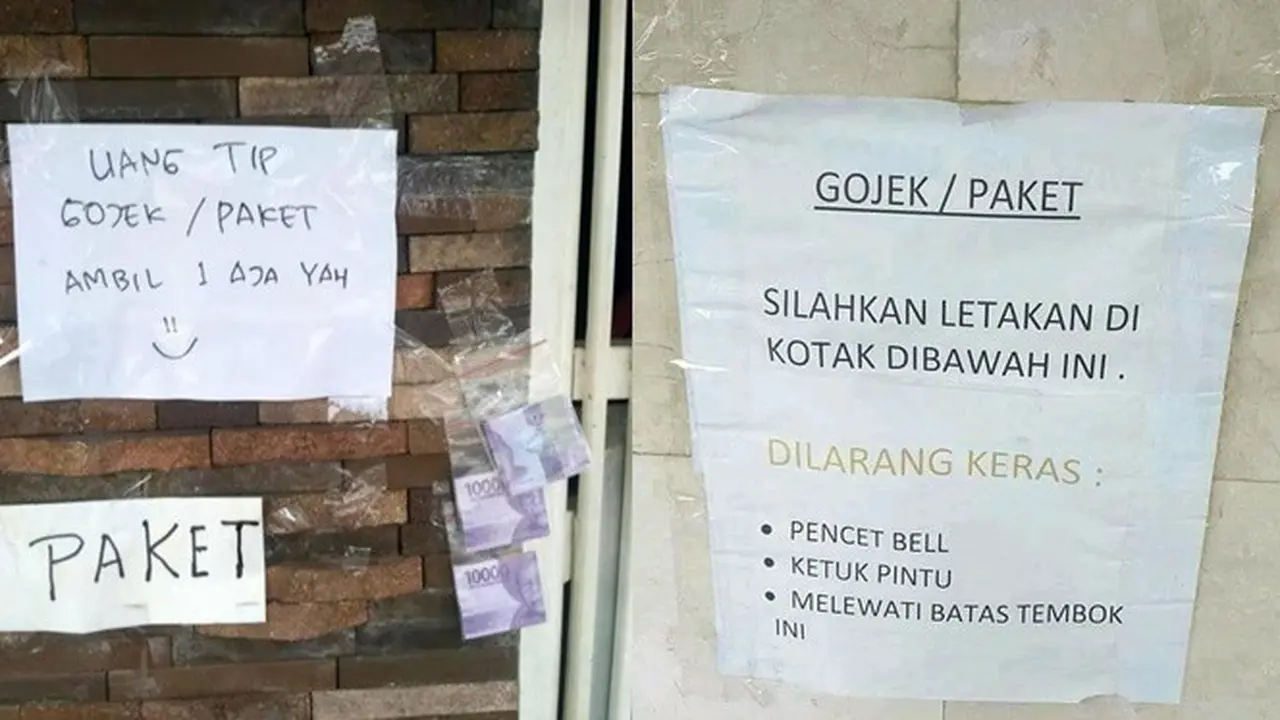 UANG TIP
GOJEK / PAKET
AMBIL 1 AJA YAH
!!
PAKET
1000
10000
GOJEK / PAKET
SILAHKAN LETAKAN DI
KOTAK DIBAWAH INI .
DILARANG KERAS :
• PENCET BELL
• KETUK PINTU
• MELEWATI BATAS TEMBOK
INI